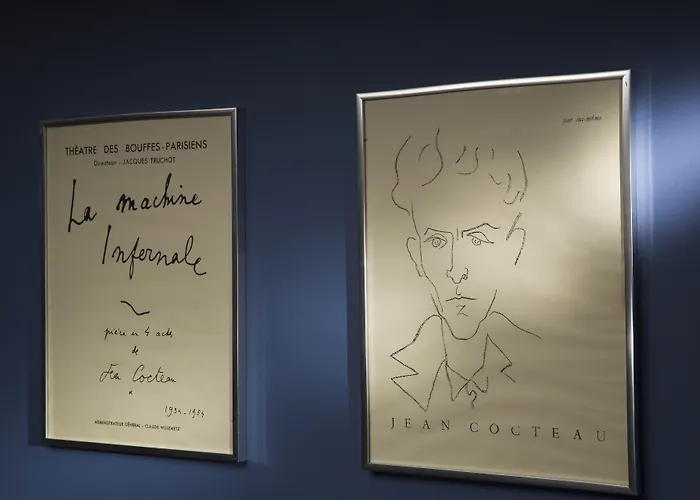 THÉATRE DES BOUFFES-PARISIENS
Directeur - JACQUES TRUCHOT
La machine
Infernale
pièce en 4 actes
de
Jean Cocteau
1934-1954
ADMINISTRATEUR GÉNÉRAL - CLAUDE WILLEMETZ
par lui-même
JEAN COCTEAU